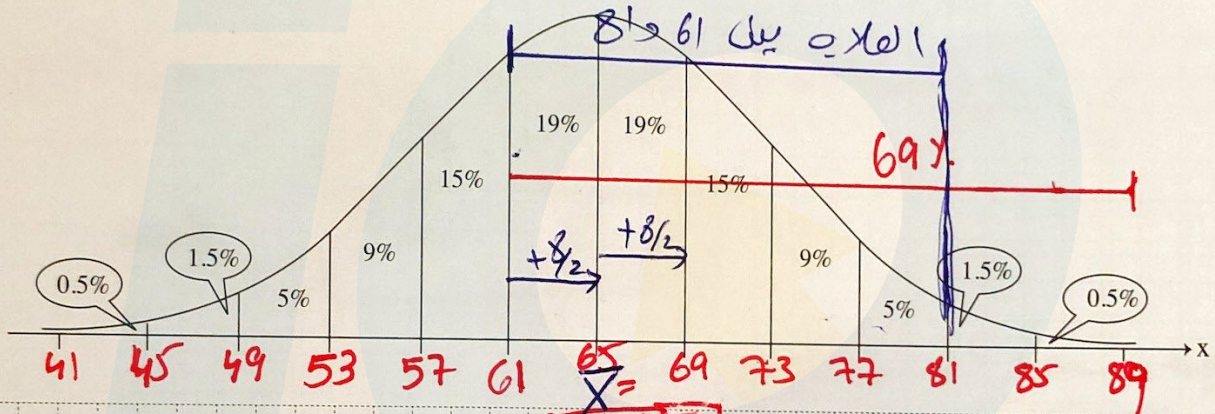 العلامة بين 61 و 81
19% 19%
69%
15% 15%
+8/2 +8/2
9% 9%
1.5% 1.5%
0.5% 0.5%
5% 5%
x
41 45 49 53 57 61 65 69 73 77 81 85 89
X̄=